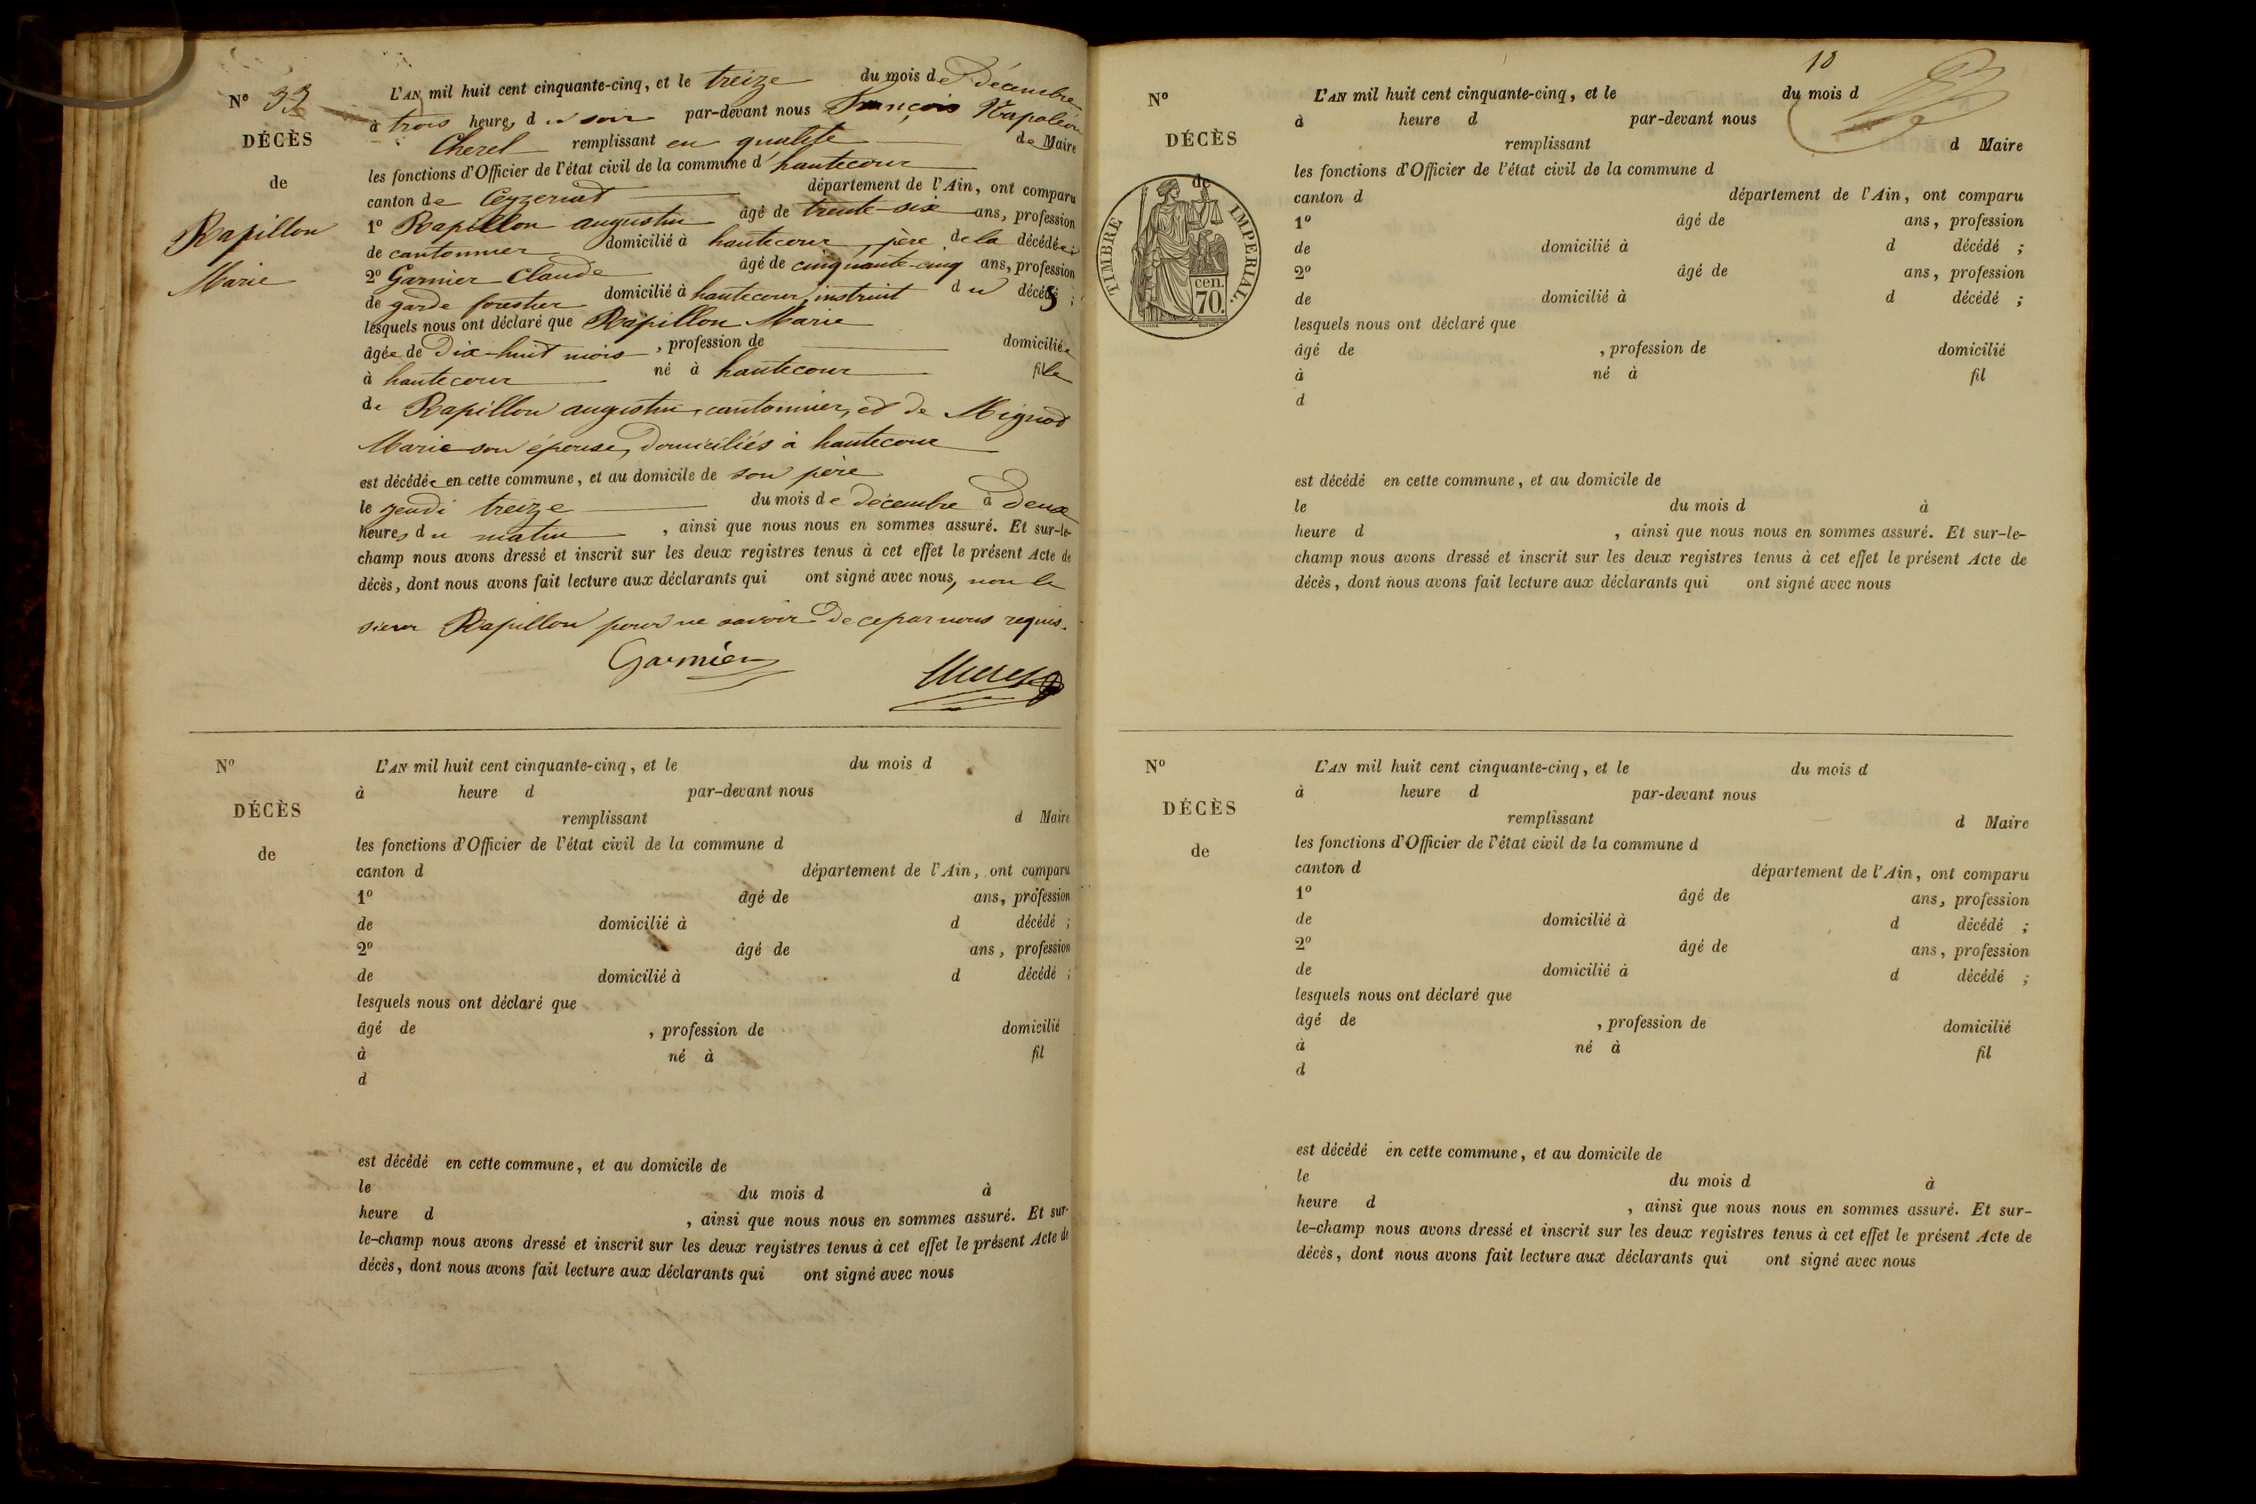 N° 33
DÉCÈS
de
Rapillon
Marie
L'AN mil huit cent cinquante-cinq, et le treize du mois de Décembre
à trois heures du soir par-devant nous François Napoléon
Cherel remplissant en qualité de Maire
les fonctions d'Officier de l'état civil de la commune d'hautecour
canton de Ceyzeriat département de l'Ain, ont comparu
1° Rapillon augustin âgé de trente-six ans, profession
de cantonnier domicilié à hautecour, père de la décédée;
2° Garnier Claude âgé de cinquante-cinq ans, profession
de garde forestier domicilié à hautecour, instruit du décés;
lesquels nous ont déclaré que Rapillon Marie
âgée de Dix-huit mois, profession de domiciliée
à hautecour né à hautecour fille
de Rapillon augustin, cantonnier, et de Mignot
Marie son épouse, domiciliés à hautecour
est décédée en cette commune, et au domicile de son père
le jeudi treize du mois de décembre à deux
heures du matin, ainsi que nous nous en sommes assuré. Et sur-le-
champ nous avons dressé et inscrit sur les deux registres tenus à cet effet le présent Acte de
décès, dont nous avons fait lecture aux déclarants qui ont signé avec nous, non le
sieur Rapillon pour ne savoir de ce par nous requis.
Garnier Cherel
N°
DÉCÈS
de
L'AN mil huit cent cinquante-cinq, et le du mois d
à heure d par-devant nous
remplissant d Maire
les fonctions d'Officier de l'état civil de la commune d
canton d département de l'Ain, ont comparu
1° âgé de ans, profession
de domicilié à d décédé ;
2° âgé de ans, profession
de domicilié à d décédé ;
lesquels nous ont déclaré que
âgé de , profession de domicilié
à né à fil
d
est décédé en cette commune, et au domicile de
le du mois d à
heure d , ainsi que nous nous en sommes assuré. Et sur-
le-champ nous avons dressé et inscrit sur les deux registres tenus à cet effet le présent Acte de
décès, dont nous avons fait lecture aux déclarants qui ont signé avec nous
10
N°
DÉCÈS
de
TIMBRE IMPERIAL.
cen.
70.
L'AN mil huit cent cinquante-cinq, et le du mois d
à heure d par-devant nous
remplissant d Maire
les fonctions d'Officier de l'état civil de la commune d
canton d département de l'Ain, ont comparu
1° âgé de ans, profession
de domicilié à d décédé ;
2° âgé de ans, profession
de domicilié à d décédé ;
lesquels nous ont déclaré que
âgé de , profession de domicilié
à né à fil
d
est décédé en cette commune, et au domicile de
le du mois d à
heure d , ainsi que nous nous en sommes assuré. Et sur-le-
champ nous avons dressé et inscrit sur les deux registres tenus à cet effet le présent Acte de
décès, dont nous avons fait lecture aux déclarants qui ont signé avec nous
N°
DÉCÈS
de
L'AN mil huit cent cinquante-cinq, et le du mois d
à heure d par-devant nous
remplissant d Maire
les fonctions d'Officier de l'état civil de la commune d
canton d département de l'Ain, ont comparu
1° âgé de ans, profession
de domicilié à d décédé ;
2° âgé de ans, profession
de domicilié à d décédé ;
lesquels nous ont déclaré que
âgé de , profession de domicilié
à né à fil
d
est décédé en cette commune, et au domicile de
le du mois d à
heure d , ainsi que nous nous en sommes assuré. Et sur-
le-champ nous avons dressé et inscrit sur les deux registres tenus à cet effet le présent Acte de
décès, dont nous avons fait lecture aux déclarants qui ont signé avec nous